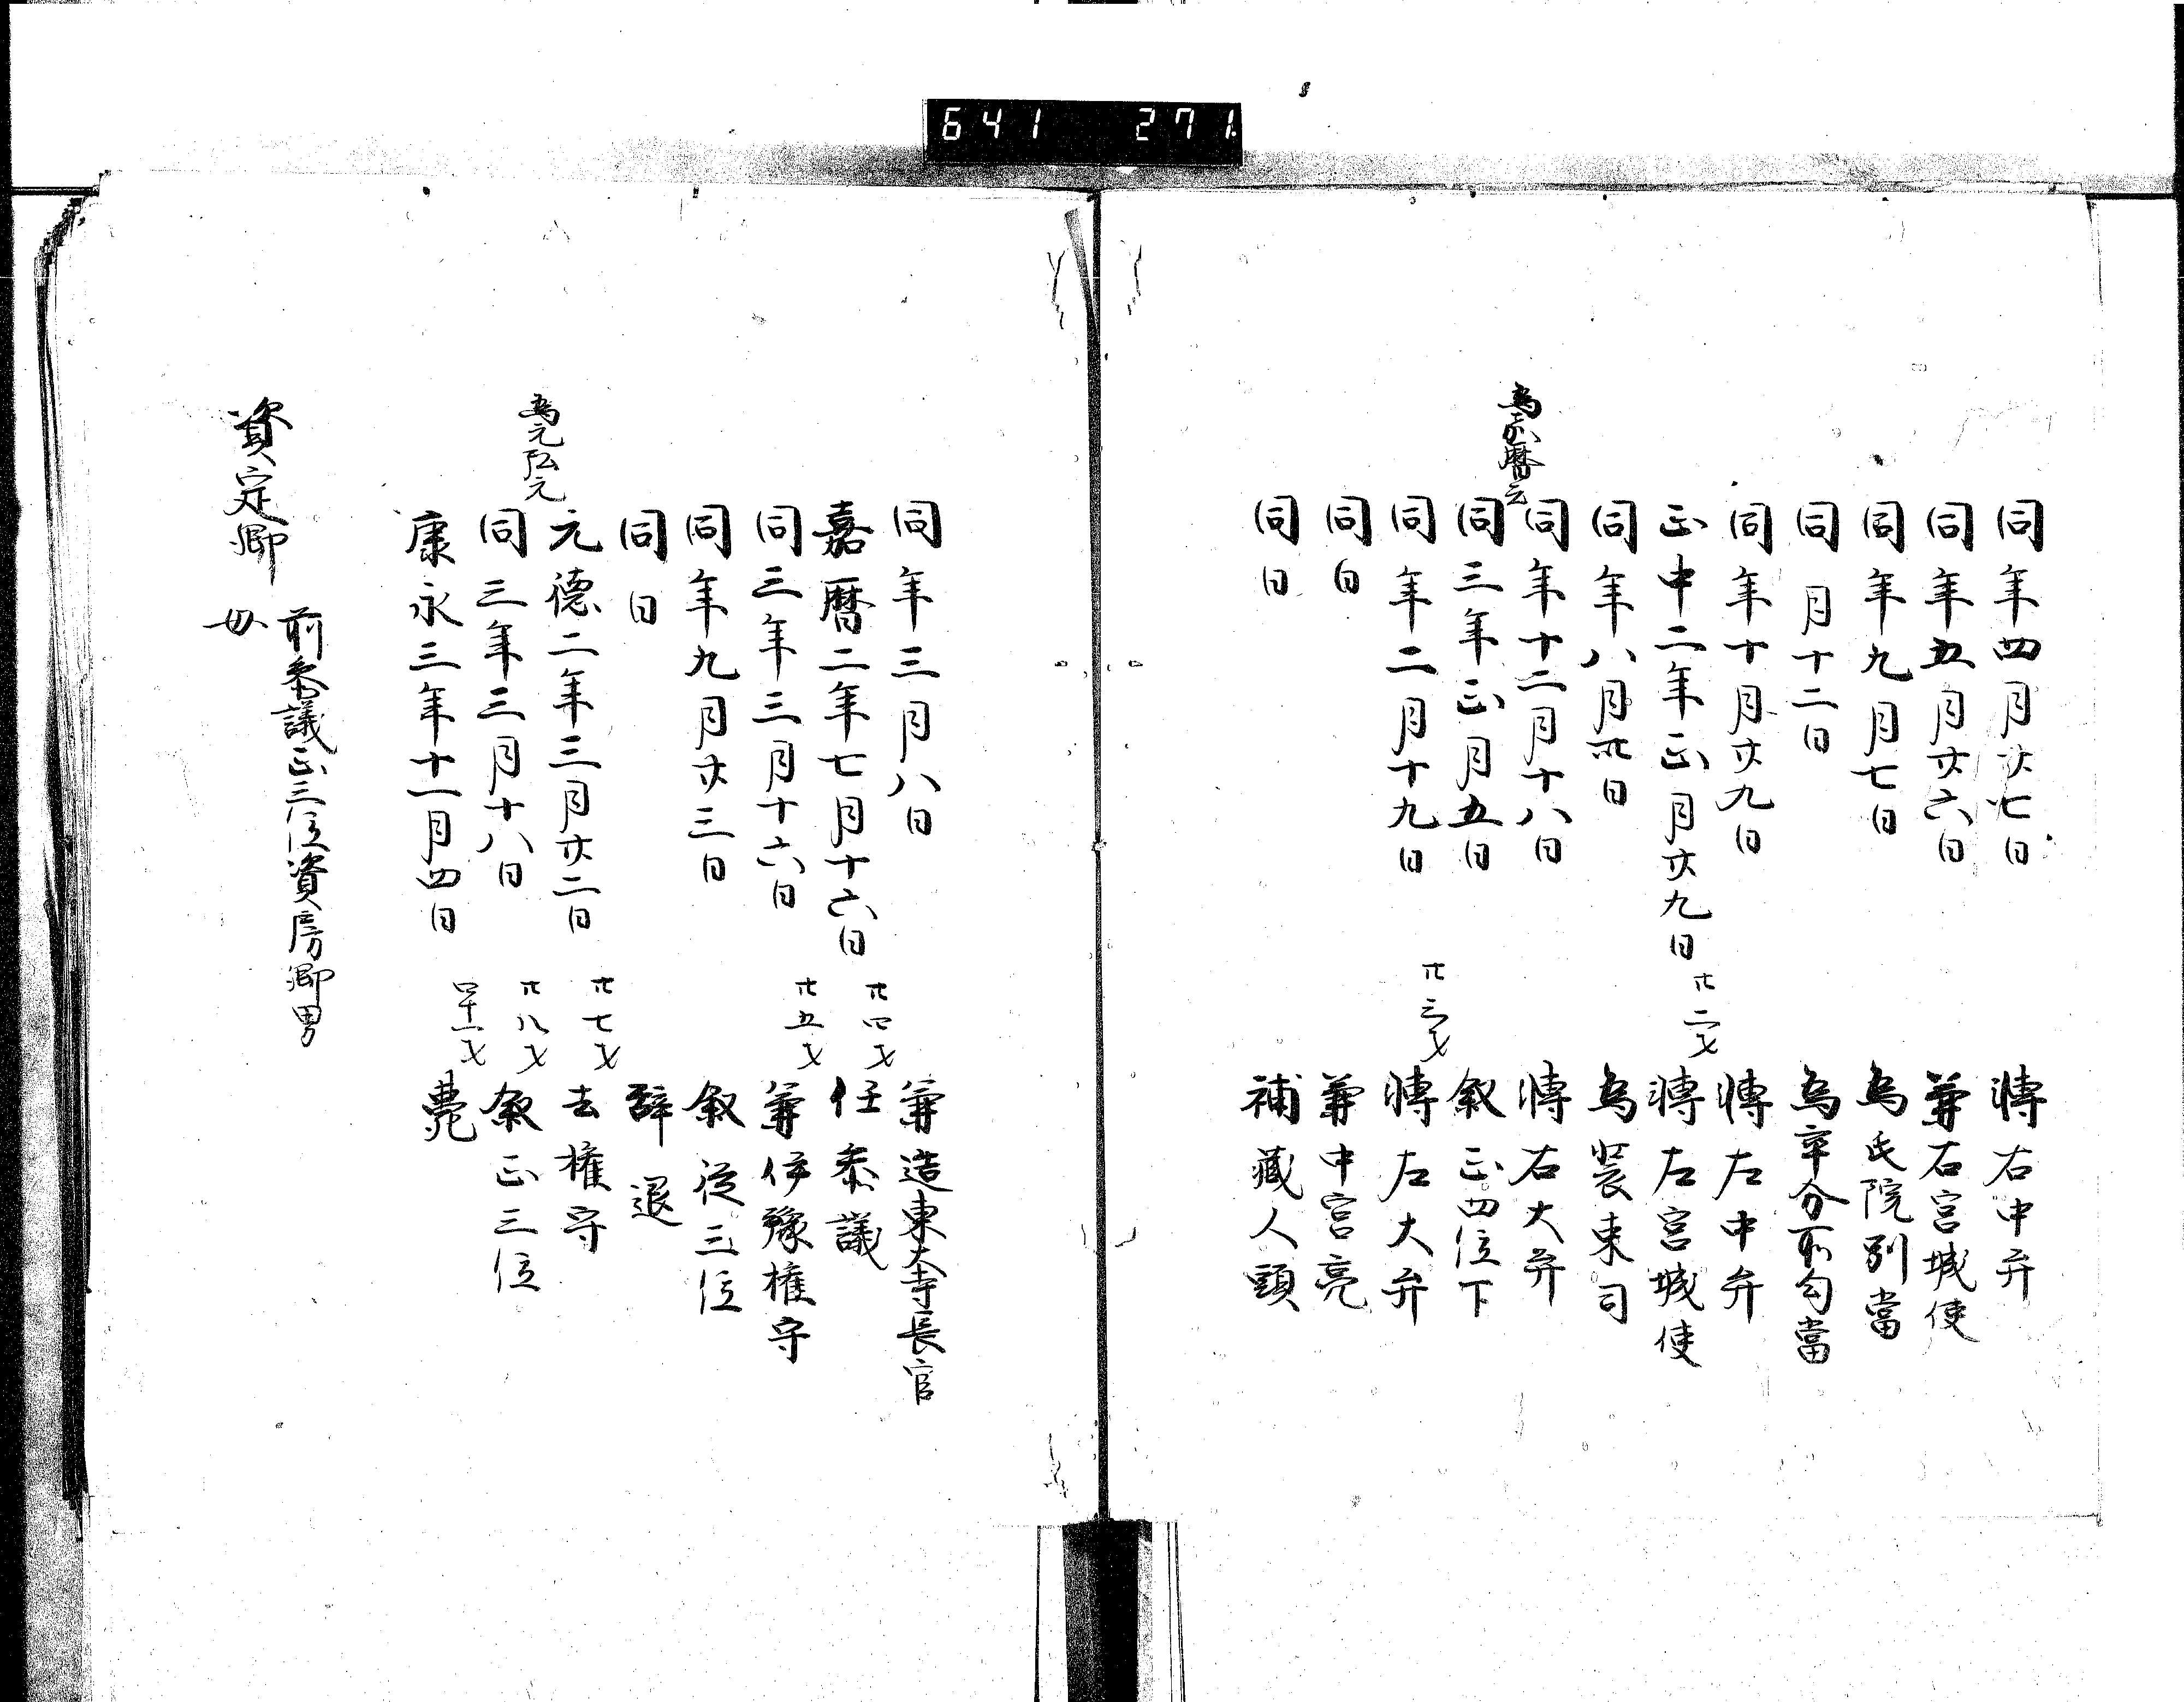 641 271
同年四月廿七日 轉右中弁
同年五月廿六日 兼右宮城使
同年九月七日 為氏院別當
同月十二日 為率分所勾當
同年十月廿九日 轉左中弁
正中二年正月廿九日 卅二才 轉左宮城使
同年八月卅日 為装束司
同年十二月十八日 轉右大弁
為嘉暦元
同三年正月五日 叙正四位下
同年二月十九日 卅三才 轉左大弁
同日 兼中宮亮
同日 補藏人頭
同年三月八日 兼造東大寺長官
嘉暦二年七月十六日 卅四才 任参議
同三年三月十六日 卅五才 兼伊豫権守
同年九月廿三日 叙従三位
同日 辞退
元德二年三月廿二日 卅七才 去権守
為元弘元
同三年三月十八日 卅八才 叙正三位
康永三年十一月四日 四十一才 薨
資定卿 前参議正三位資房卿男
母